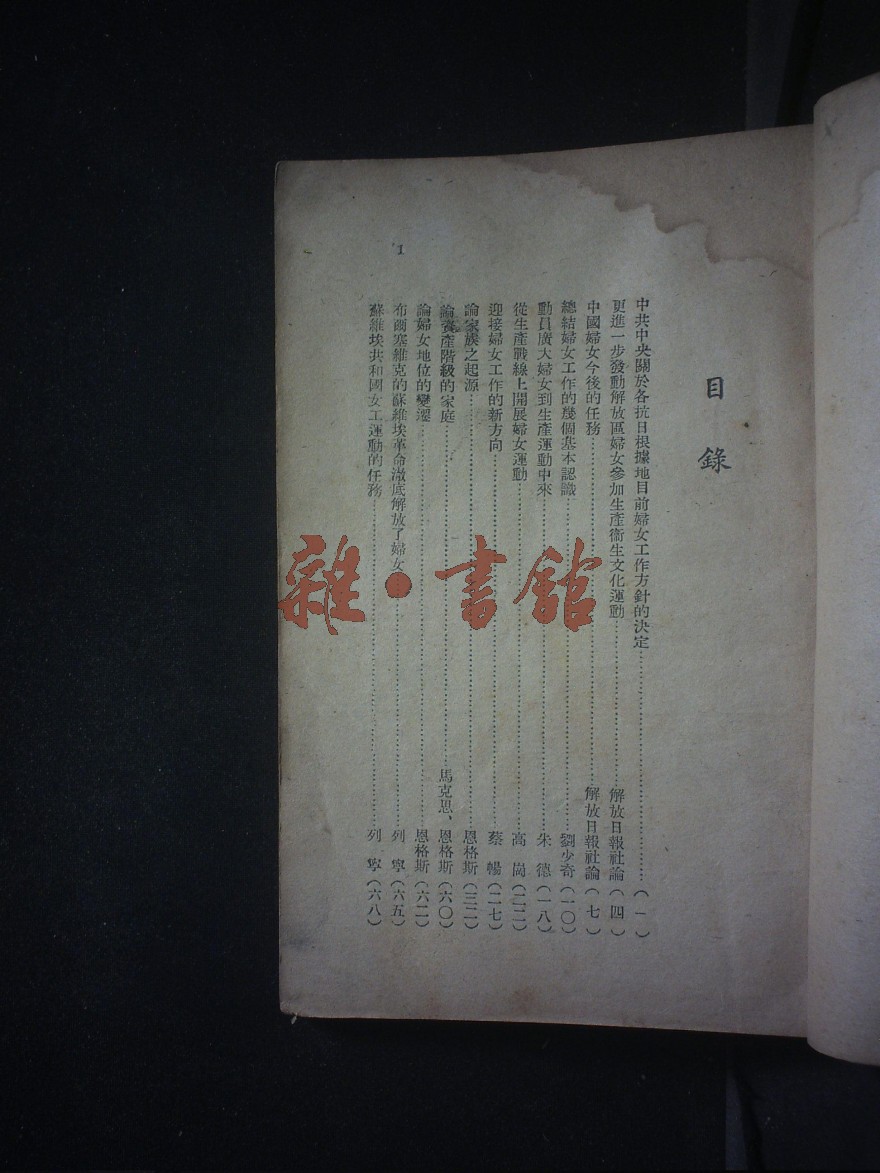 目錄
中共中央關於各抗日根據地目前婦女工作方針的決定……（一）
更進一步發動解放區婦女參加生產衛生文化運動……解放日報社論（四）
中國婦女今後的任務……解放日報社論（七）
總結婦女工作的幾個基本認識……劉少奇（一〇）
動員廣大婦女到生產運動中來……朱 德（一八）
從生產戰線上開展婦女運動……高 崗（二二）
迎接婦女工作的新方向……蔡 暢（二七）
論家族之起源……恩格斯（三二）
論資產階級的家庭……馬克思、恩格斯（六〇）
論婦女地位的變遷……恩格斯（六二）
布爾塞維克的蘇維埃革命澈底解放了婦女……列 寧（六五）
蘇維埃共和國女工運動的任務……列 寧（六八）
1
雜·書館